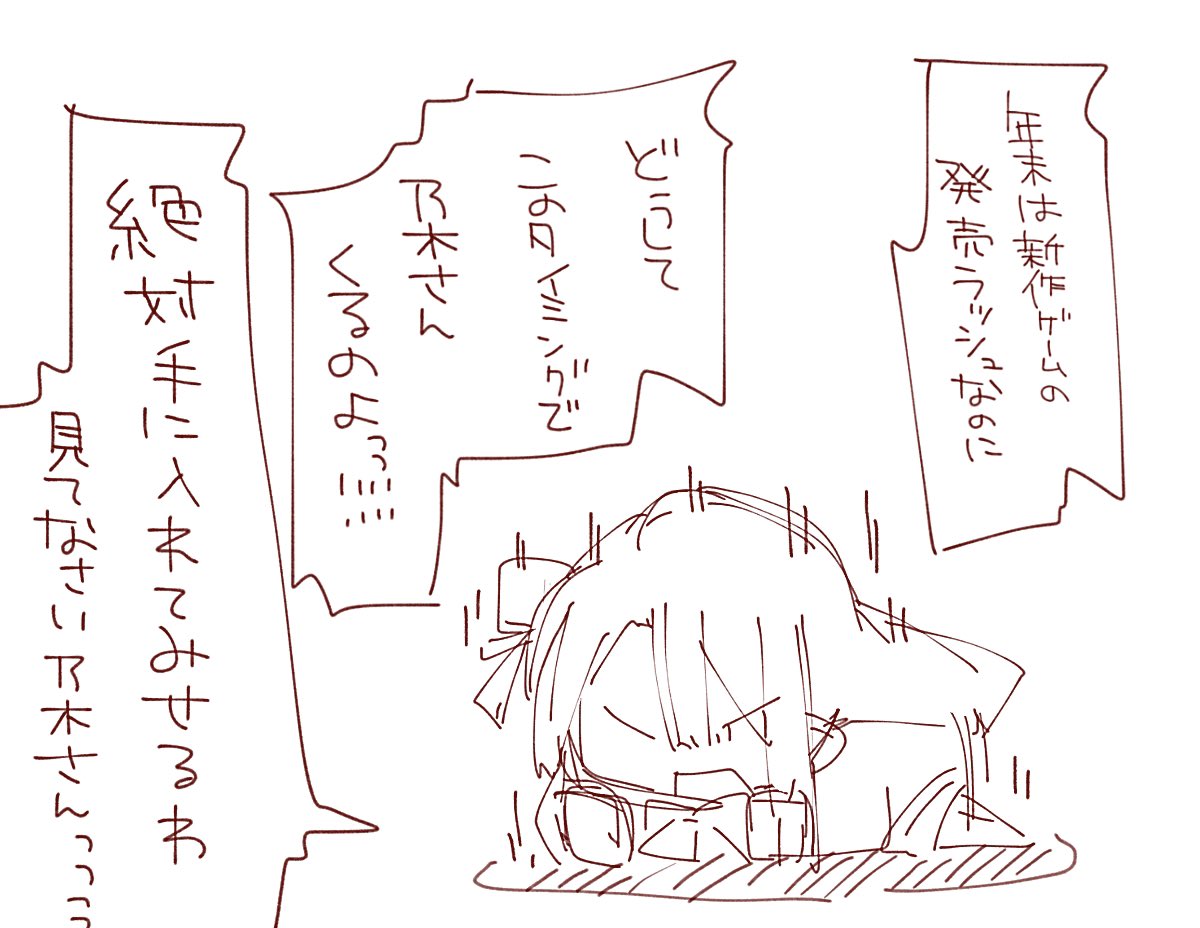 年末は新作ゲームの
発売ラッシュなのに
どうして
このタイミングで
乃木さん
くるのよっっ!!!!
絶対手に入れてみせるわ
見てなさい乃木さんっっっっ